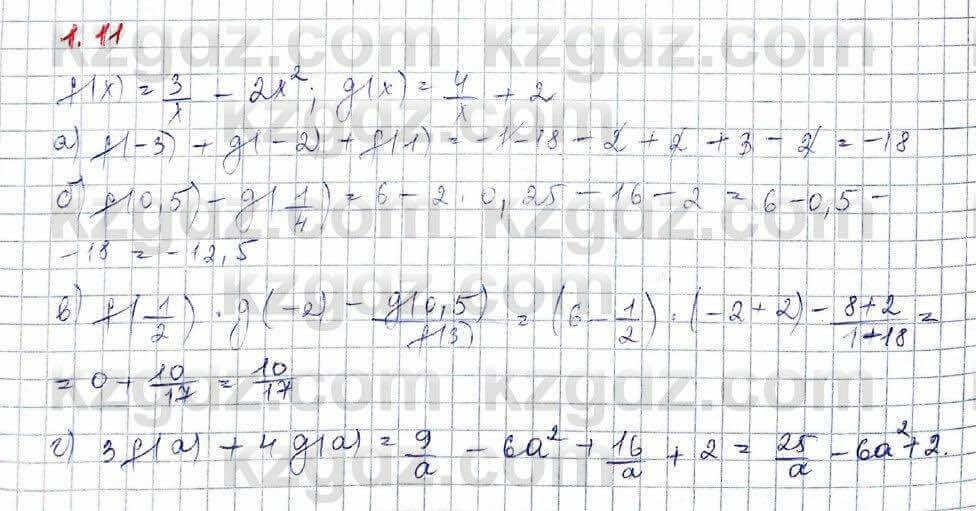 1.11
f(x) = 3/x - 2x²; g(x) = 4/x + 2
а) f(-3) + g(-2) + f(1) = -1 - 18 - 2 + 2 + 3 - 2 = -18
б) f(0,5) - g(1/4) = 6 - 2 · 0,25 - 16 - 2 = 6 - 0,5 -
-18 = -12,5
в) f(1/2) · g(-2) - g(0,5)/f(3) = (6 - 1/2) · (-2 + 2) - 8+2/1-18 =
= 0 + 10/17 = 10/17
г) 3f(a) + 4g(a) = 9/a - 6a² + 16/a + 2 = 25/a - 6a² + 2.
kzgdz.com kzgdz.com
kzgdz.com kzgdz.com
kzgdz.com kzgdz.com
kzgdz.com kzgdz.com
kzgdz.com kzgdz.com
kzgdz.com kzgdz.com